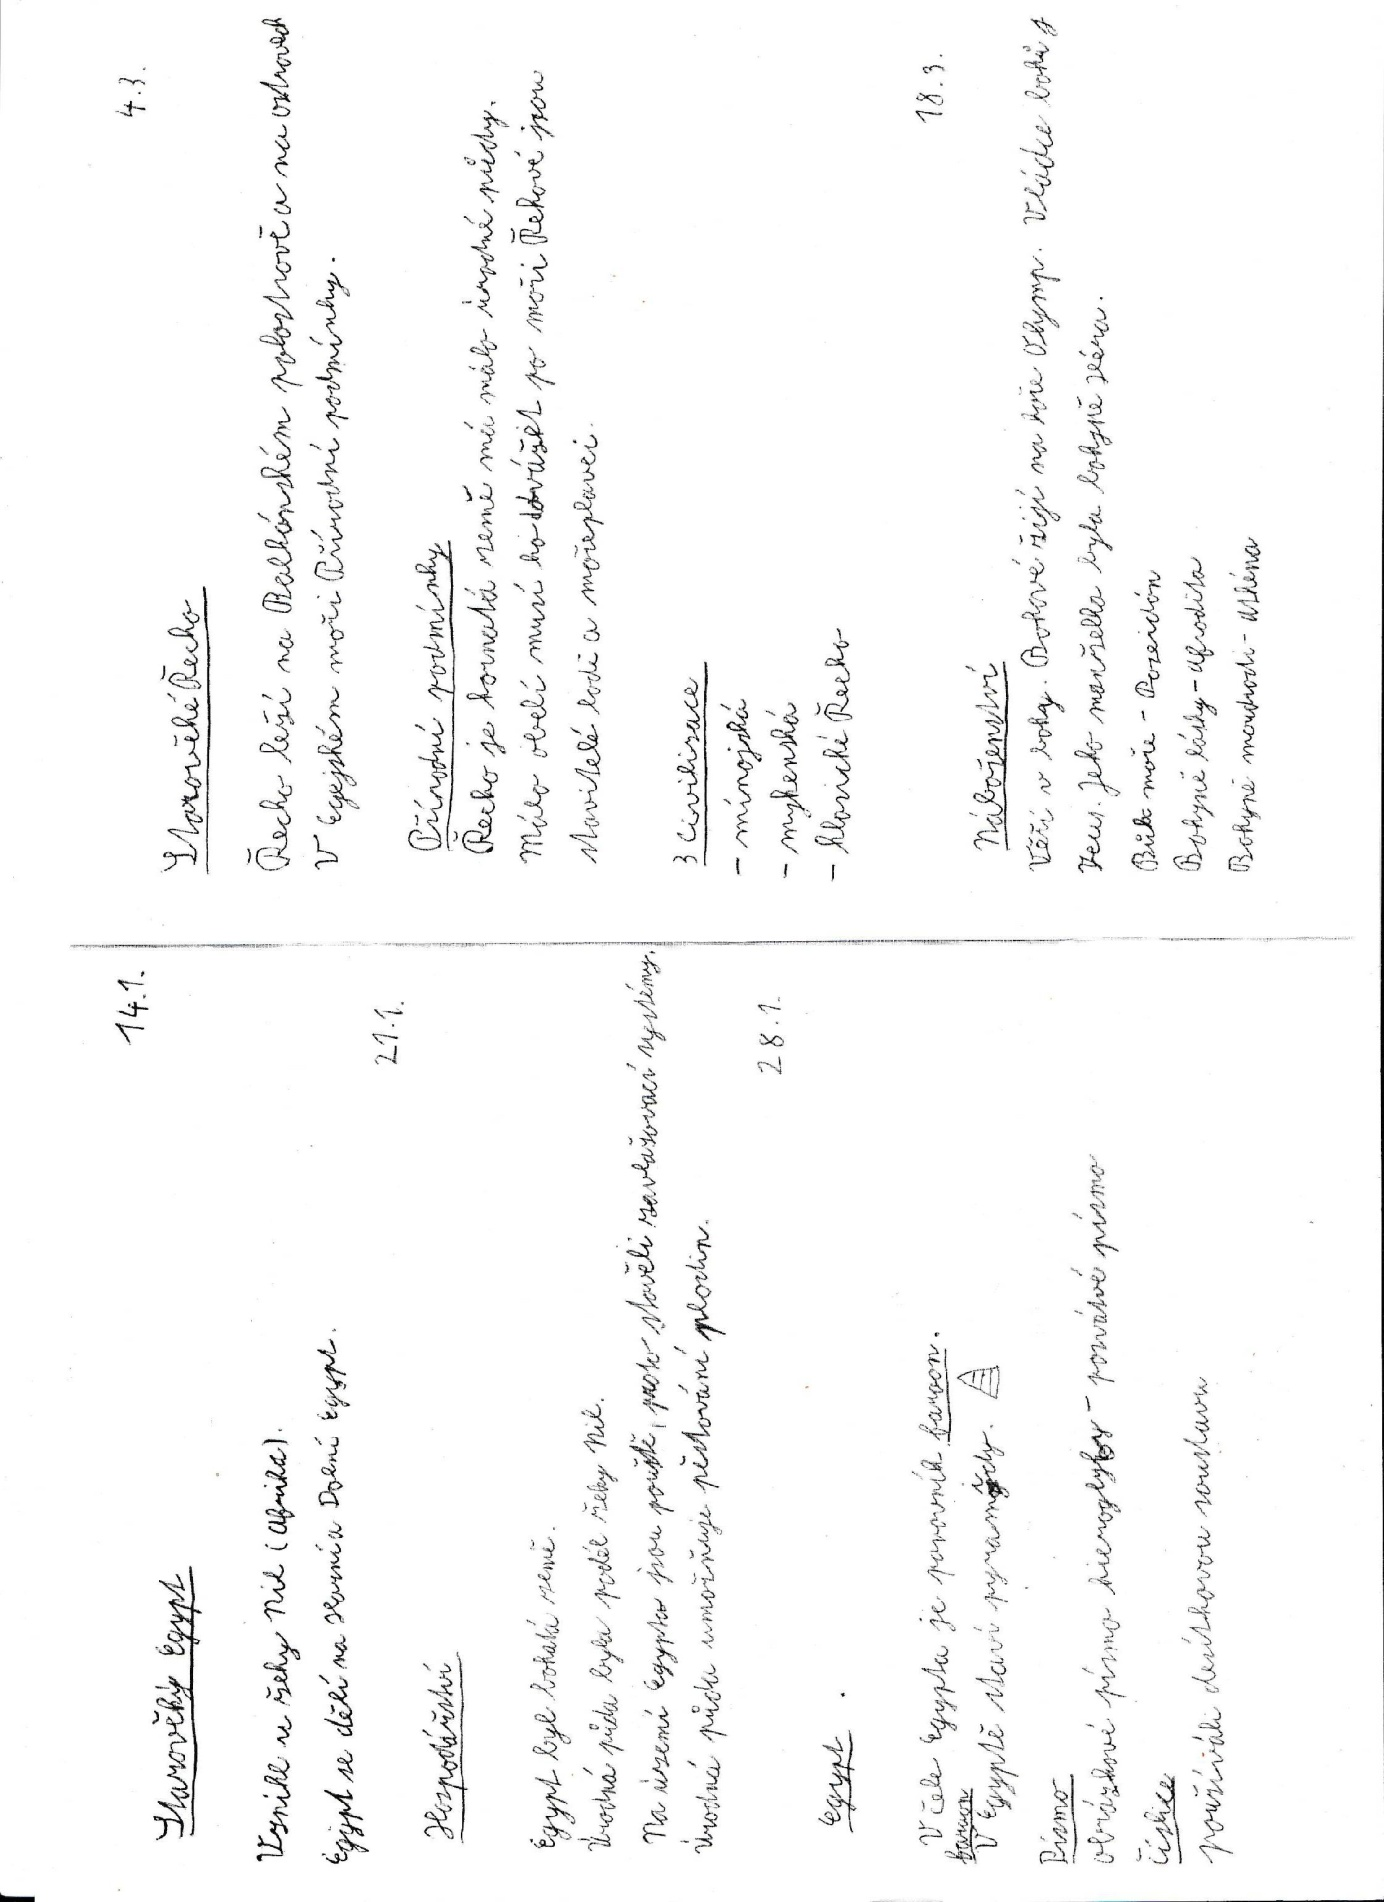 14.1.
Starověký Egypt
Vznikl u řeky Nil (Afrika).
Egypt se dělí na Horní a Dolní Egypt.
21.1.
Hospodářství
Egypt byl bohatá země.
Úrodná půda byla podél řeky Nil.
Na území Egypta jsou pouště, proto stavěli zavlažovací systémy.
Úrodná půda umožňuje pěstování plodin.
28.1.
Egypt.
V čele Egypta je panovník faraon.
faraon
V Egyptě staví pyramidy.
Písmo
obrázkové písmo hieroglyfy - posvátné písmo
Číslice
používali desítkovou soustavu
4.3.
Starověké Řecko
Řecko leží na Balkánském poloostrově a na ostrovech
V Egejském moři Přírodní podmínky.
Přírodní podmínky
Řecko je hornatá země má málo úrodné půdy.
Málo obelí musí ho dovážet po moři Řekové jsou
stavitelé lodí a mořeplavci.
3 civilizace
- minojská
- mykenská
- klasické Řecko
18.3.
Náboženství
Věří v bohy. Bohové žijí na hoře Olymp. Vládce bohů je
Zeus. Jeho manželka byla bohyně Héra.
Bůh moře - Poseidón
Bohyně lásky - Afrodita
Bohyně moudrosti - Athéna